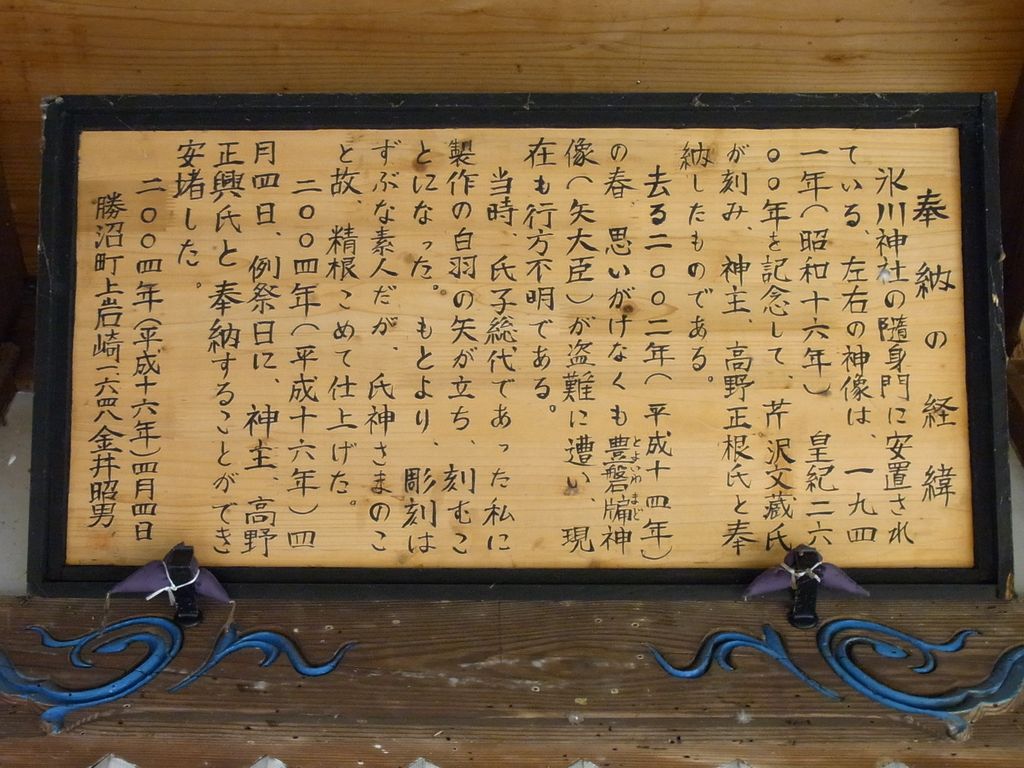 奉納の経緯
氷川神社の隨身門に安置され
ている、左右の神像は、一九四
一年(昭和十六年)皇紀二六
〇〇年を記念して、芹沢文蔵氏
が刻み、神主、高野正根氏と奉
納したものである。
去る二〇〇二年(平成十四年)
の春、思いがけなくも豊磐牖神
とよいわまど
像(矢大臣)が盗難に遭い、現
在も行方不明である。
当時、氏子総代であった私に
製作の白羽の矢が立ち、刻むこ
とになった。もとより、彫刻は
ずぶな素人だが、氏神さまのこ
と故、精根こめて仕上げた。
二〇〇四年(平成十六年)四
月四日、例祭日に、神主、高野
正興氏と奉納することができ
安堵した。
二〇〇四年(平成十六年)四月四日
勝沼町上岩崎一六四八金井昭男